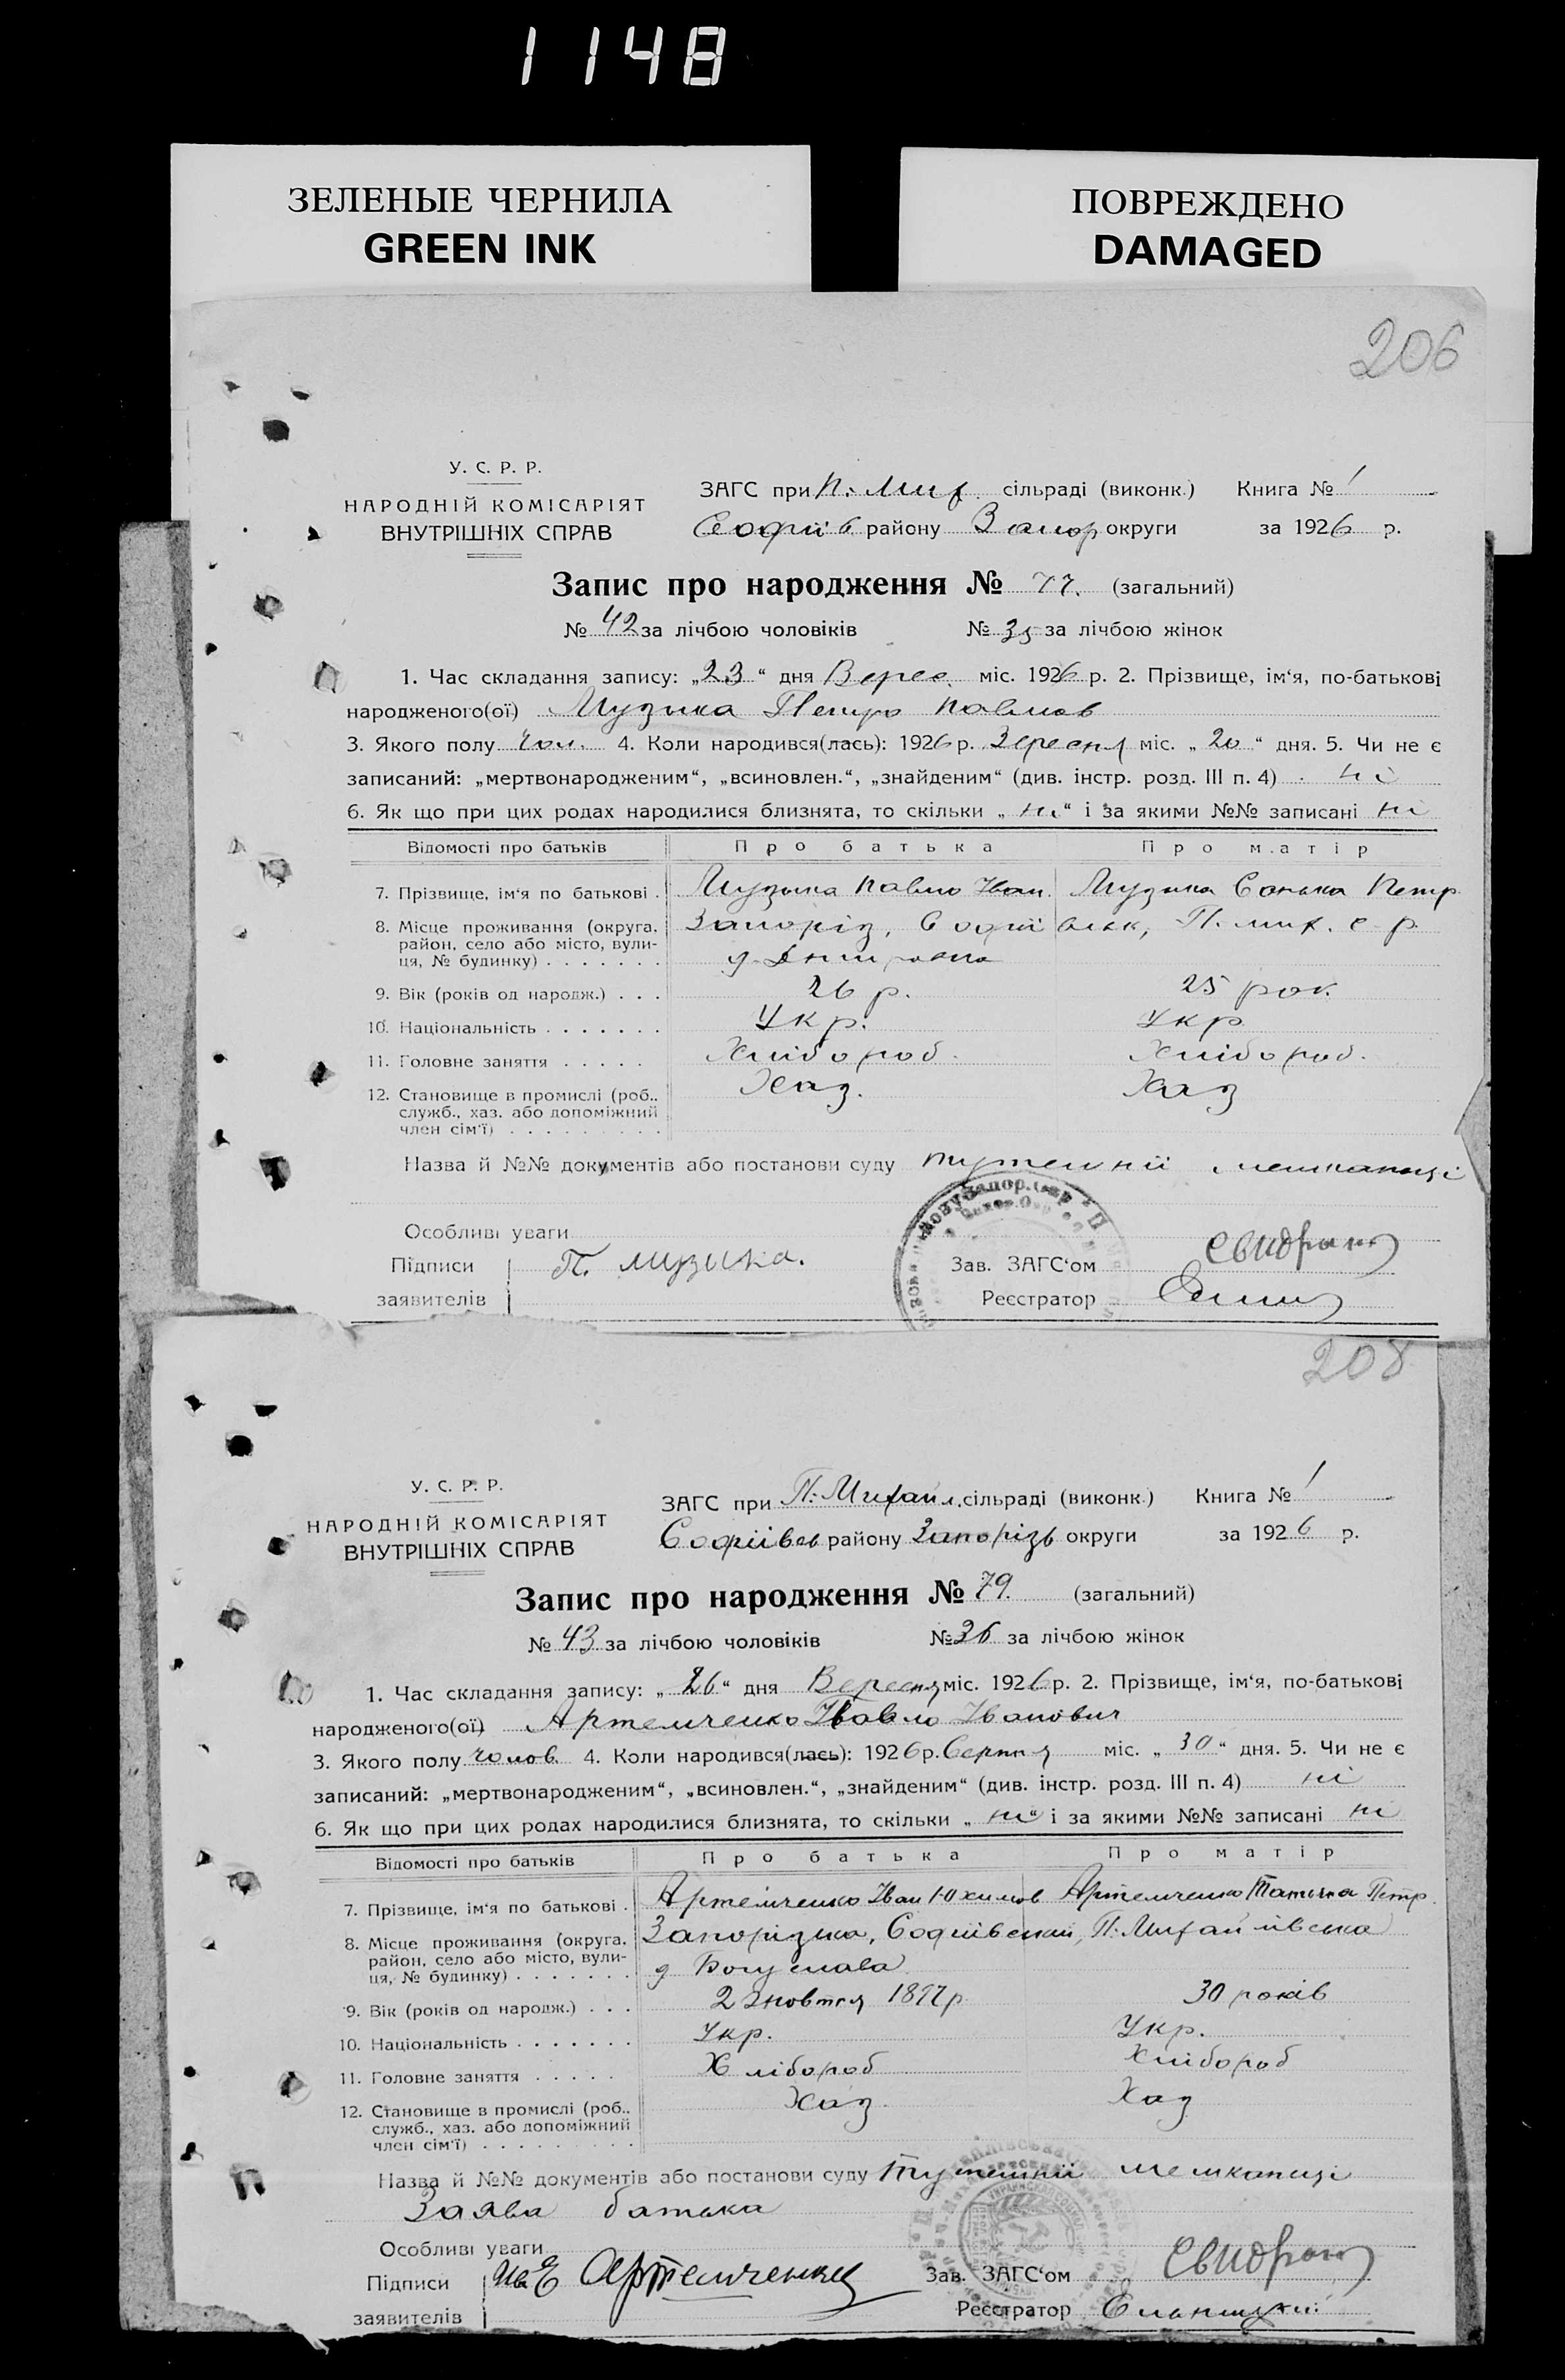 1148
ЗЕЛЕНЫЕ ЧЕРНИЛА
GREEN INK
ПОВРЕЖДЕНО
DAMAGED
206
У. С. Р. Р.
НАРОДНІЙ КОМІСАРІЯТ
ВНУТРІШНІХ СПРАВ
ЗАГС при П.-Мих. сільраді (виконк.) Книга № 1
Софіїв району Запор округи за 1926 р.
Запис про народження № 77. (загальний)
№ 42 за лічбою чоловіків № 35 за лічбою жінок
1. Час складання запису: „23“ дня Верес. міс. 1926 р. 2. Прізвище, ім‘я, по-батькові
народженого(ої) Музика Петро Павлов
3. Якого полу Чол. 4. Коли народився(лась): 1926 р. Вересня міс. „20“ дня. 5. Чи не є
записаний: „мертвонародженим“, „всиновлен.“, „знайденим“ (див. інстр. розд. III п. 4) ні
6. Як що при цих родах народилися близнята, то скільки „ні“ і за якими №№ записані ні
Відомості про батьків Про батька Про матір
7. Прізвище, ім‘я по батькові . Музика Павло Іван. Музика Санька Петр
8. Місце проживання (округа, район, село або місто, вулиця, № будинку) Запоріз, Софіївськ, П. мих. с-р
9. Вік (років од народж.) . . . 26 р. 25 рок.
10. Національність . . . . . . . Укр. Укр
11. Головне заняття . . . . . Хлібороб. Хлібороб.
12. Становище в промислі (роб.. Хаз. Хаз
служб., хаз. або допоміжний
член сім‘ї) . . . . . . . . .
Назва й №№ документів або постанови суду тутешній мешканці
Особливі уваги
Підписи П. музика. Зав. ЗАГС‘ом
заявителів Реєстратор
208
У. С. Р. Р.
НАРОДНІЙ КОМІСАРІЯТ
ВНУТРІШНІХ СПРАВ
ЗАГС при П.-Михайл. сільраді (виконк.) Книга № 1
Софіївсь району Запорізь округи за 1926 р.
Запис про народження № 79. (загальний)
№ 43 за лічбою чоловіків № 36 за лічбою жінок
1. Час складання запису: „26“ дня Вересня міс. 1926 р. 2. Прізвище, ім‘я, по-батькові
народженого(ої) Артемченко Павло Іванович
3. Якого полу чолов. 4. Коли народився(лась): 1926 р. Серпня міс. „30“ дня. 5. Чи не є
записаний: „мертвонародженим“, „всиновлен.“, „знайденим“ (див. інстр. розд. III п. 4) ні
6. Як що при цих родах народилися близнята, то скільки „ні“ і за якими №№ записані ні
Відомості про батьків Про батька Про матір
7. Прізвище, ім‘я по батькові . Артемченко Іван Юхимов Артемченко Татьяна Петр.
8. Місце проживання (округа, Запорізька, Софіївський, П.-Михайлівська
район, село або місто, вули-
ця, № будинку) . . . . . . . д Богуслава
9. Вік (років од народж.) . . . 2 Жовтня 1897 р. 30 років
10. Національність . . . . . . . Укр. Укр.
11. Головне заняття . . . . . Хлібороб Хлібороб
12. Становище в промислі (роб.. Хаз. Хаз
служб., хаз. або допоміжний
член сім‘ї) . . . . . . . . .
Назва й №№ документів або постанови суду Тутешній мешканці
Заява батька
Особливі уваги
Підписи Артемченко Зав. ЗАГС‘ом
заявителів Реєстратор